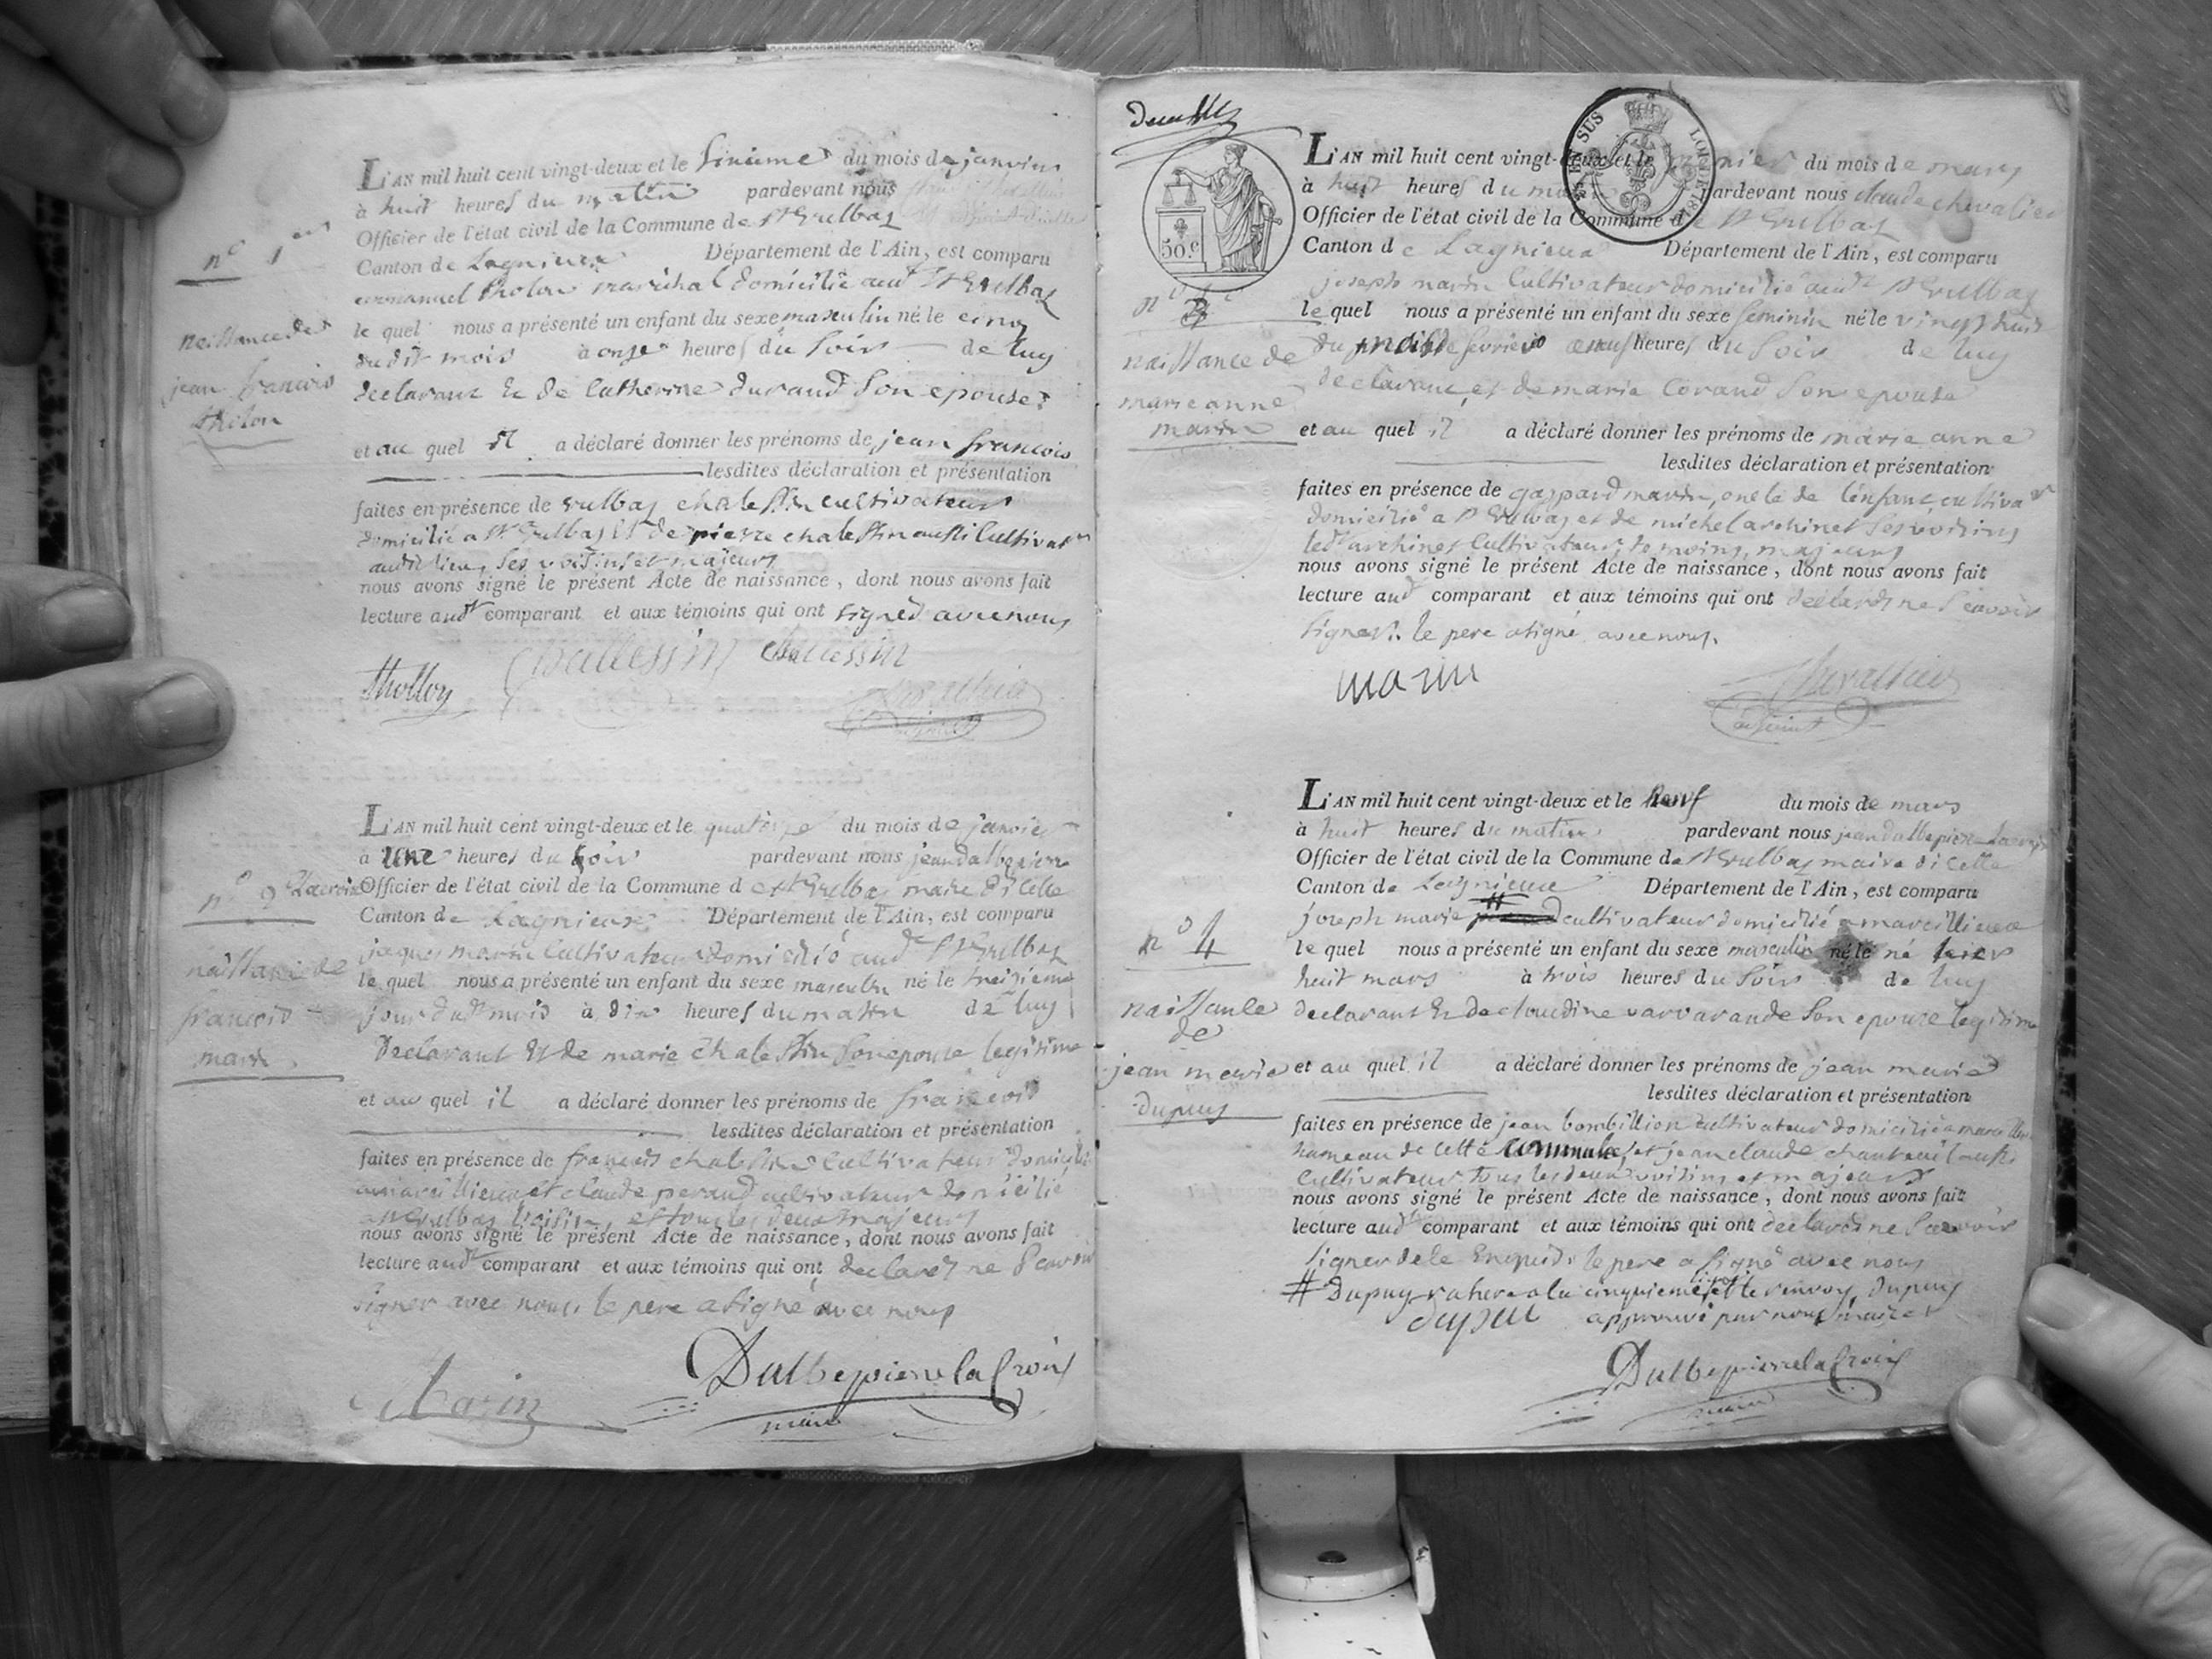 n° 1er
naissance de
jean francois
tholon
L'AN mil huit cent vingt-deux et le sixieme du mois de janvier
à huit heures du matin pardevant nous
Officier de l'état civil de la Commune de St Vulbas
Canton de Lagnieux Département de l'Ain, est comparu
emmanuel tholon maréchal domicilié aud St Vulbas
le quel nous a présenté un enfant du sexe masculin né le cinq
du dit mois à onze heures du soir de luy
declarant et de Catherine durand son epouse
et au quel il a déclaré donner les prénoms de jean francois
lesdites déclaration et présentation
faites en présence de vulbas chalessin cultivateur
domicilié a St Vulbas et de pierre chalessin aussi Cultivatr
audit lieu, ses voisins et majeurs
nous avons signé le présent Acte de naissance, dont nous avons fait
lecture audt comparant et aux témoins qui ont signés avec nous
thollon Challessin Challessin
n° 2
naissance de
francois
marin
L'AN mil huit cent vingt-deux et le quatorze du mois de janvier
à une heures du soir pardevant nous jean dalbepierre
Lacroix Officier de l'état civil de la Commune de St Vulbas maire dicelle
Canton de Lagnieux Département de l'Ain, est comparu
jaques marin Cultivateur domicilié aud St Vulbas
le quel nous a présenté un enfant du sexe masculin né le treizieme
jour dudt mois à dix heures du matin de luy
Declarant et de marie chalessin son epouse legitime
et au quel il a déclaré donner les prénoms de francois
lesdites déclaration et présentation
faites en présence de francois chalessin Cultivateur domicilié
a marcillieux et claude perand cultivateur domicilié
a St Vulbas voisin, et tous les deux majeurs
nous avons signé le présent Acte de naissance, dont nous avons fait
lecture audt comparant et aux témoins qui ont declarés ne scavoir
signer avec nous, le pere a signé avec nous
Marin Dalbepierre la Croix
maire
50.c
EN SUS
n° 3
naissance de
marie anne
marin
L'AN mil huit cent vingt-deux et le premier du mois de mars
à huit heures du matin pardevant nous claude chevalier
Officier de l'état civil de la Commune de St Vulbas
Canton de Lagnieux Département de l'Ain, est comparu
joseph marin Cultivateur domicilié audt St Vulbas
le quel nous a présenté un enfant du sexe feminin né le vingt huit
du fevrier a neuf heures du soir de luy
declarant, et de marie Corand son epouse
et au quel il a déclaré donner les prénoms de marie anne
lesdites déclaration et présentation
faites en présence de gaspard marin, oncle de l'enfant, cultivatr
domicilié a St Vulbas et de michel archinet ses voisins
ledt archinet Cultivateur, temoins, majeurs
nous avons signé le présent Acte de naissance, dont nous avons fait
lecture audt comparant et aux témoins qui ont declarés ne scavoir
signer. le pere a signé avec nous.
marin Chevallier
adjoint
n° 4
naissance
de
jean marie
dupuy
L'AN mil huit cent vingt-deux et le neuf du mois de mars
à huit heures du matin pardevant nous jean dalbepierre Lacroix
Officier de l'état civil de la Commune de St Vulbas maire dicelle
Canton de Lagnieux Département de l'Ain, est comparu
joseph marie # cultivateur domicilié a marcillieux
le quel nous a présenté un enfant du sexe masculin né le né hier
huit mars à trois heures du soir de luy
declarant et de claudine varvarande son epouse legitime
et au quel il a déclaré donner les prénoms de jean marie
lesdites déclaration et présentation
faites en présence de jean bombillion cultivateur domicilié a marcillieux
hameau de cette commune, et jean claude chanteuil aussi
cultivateur tous les deux voisins et majeurs
nous avons signé le présent Acte de naissance, dont nous avons fait
lecture audt comparant et aux témoins qui ont declarés ne scavoir
signer de le Enquis. le pere a signé avec nous
# Dupuy rature a la cinquieme ligne et le renvoy Dupuy
dupui approuvé par nous maire
Dalbepierre la Croix
maire